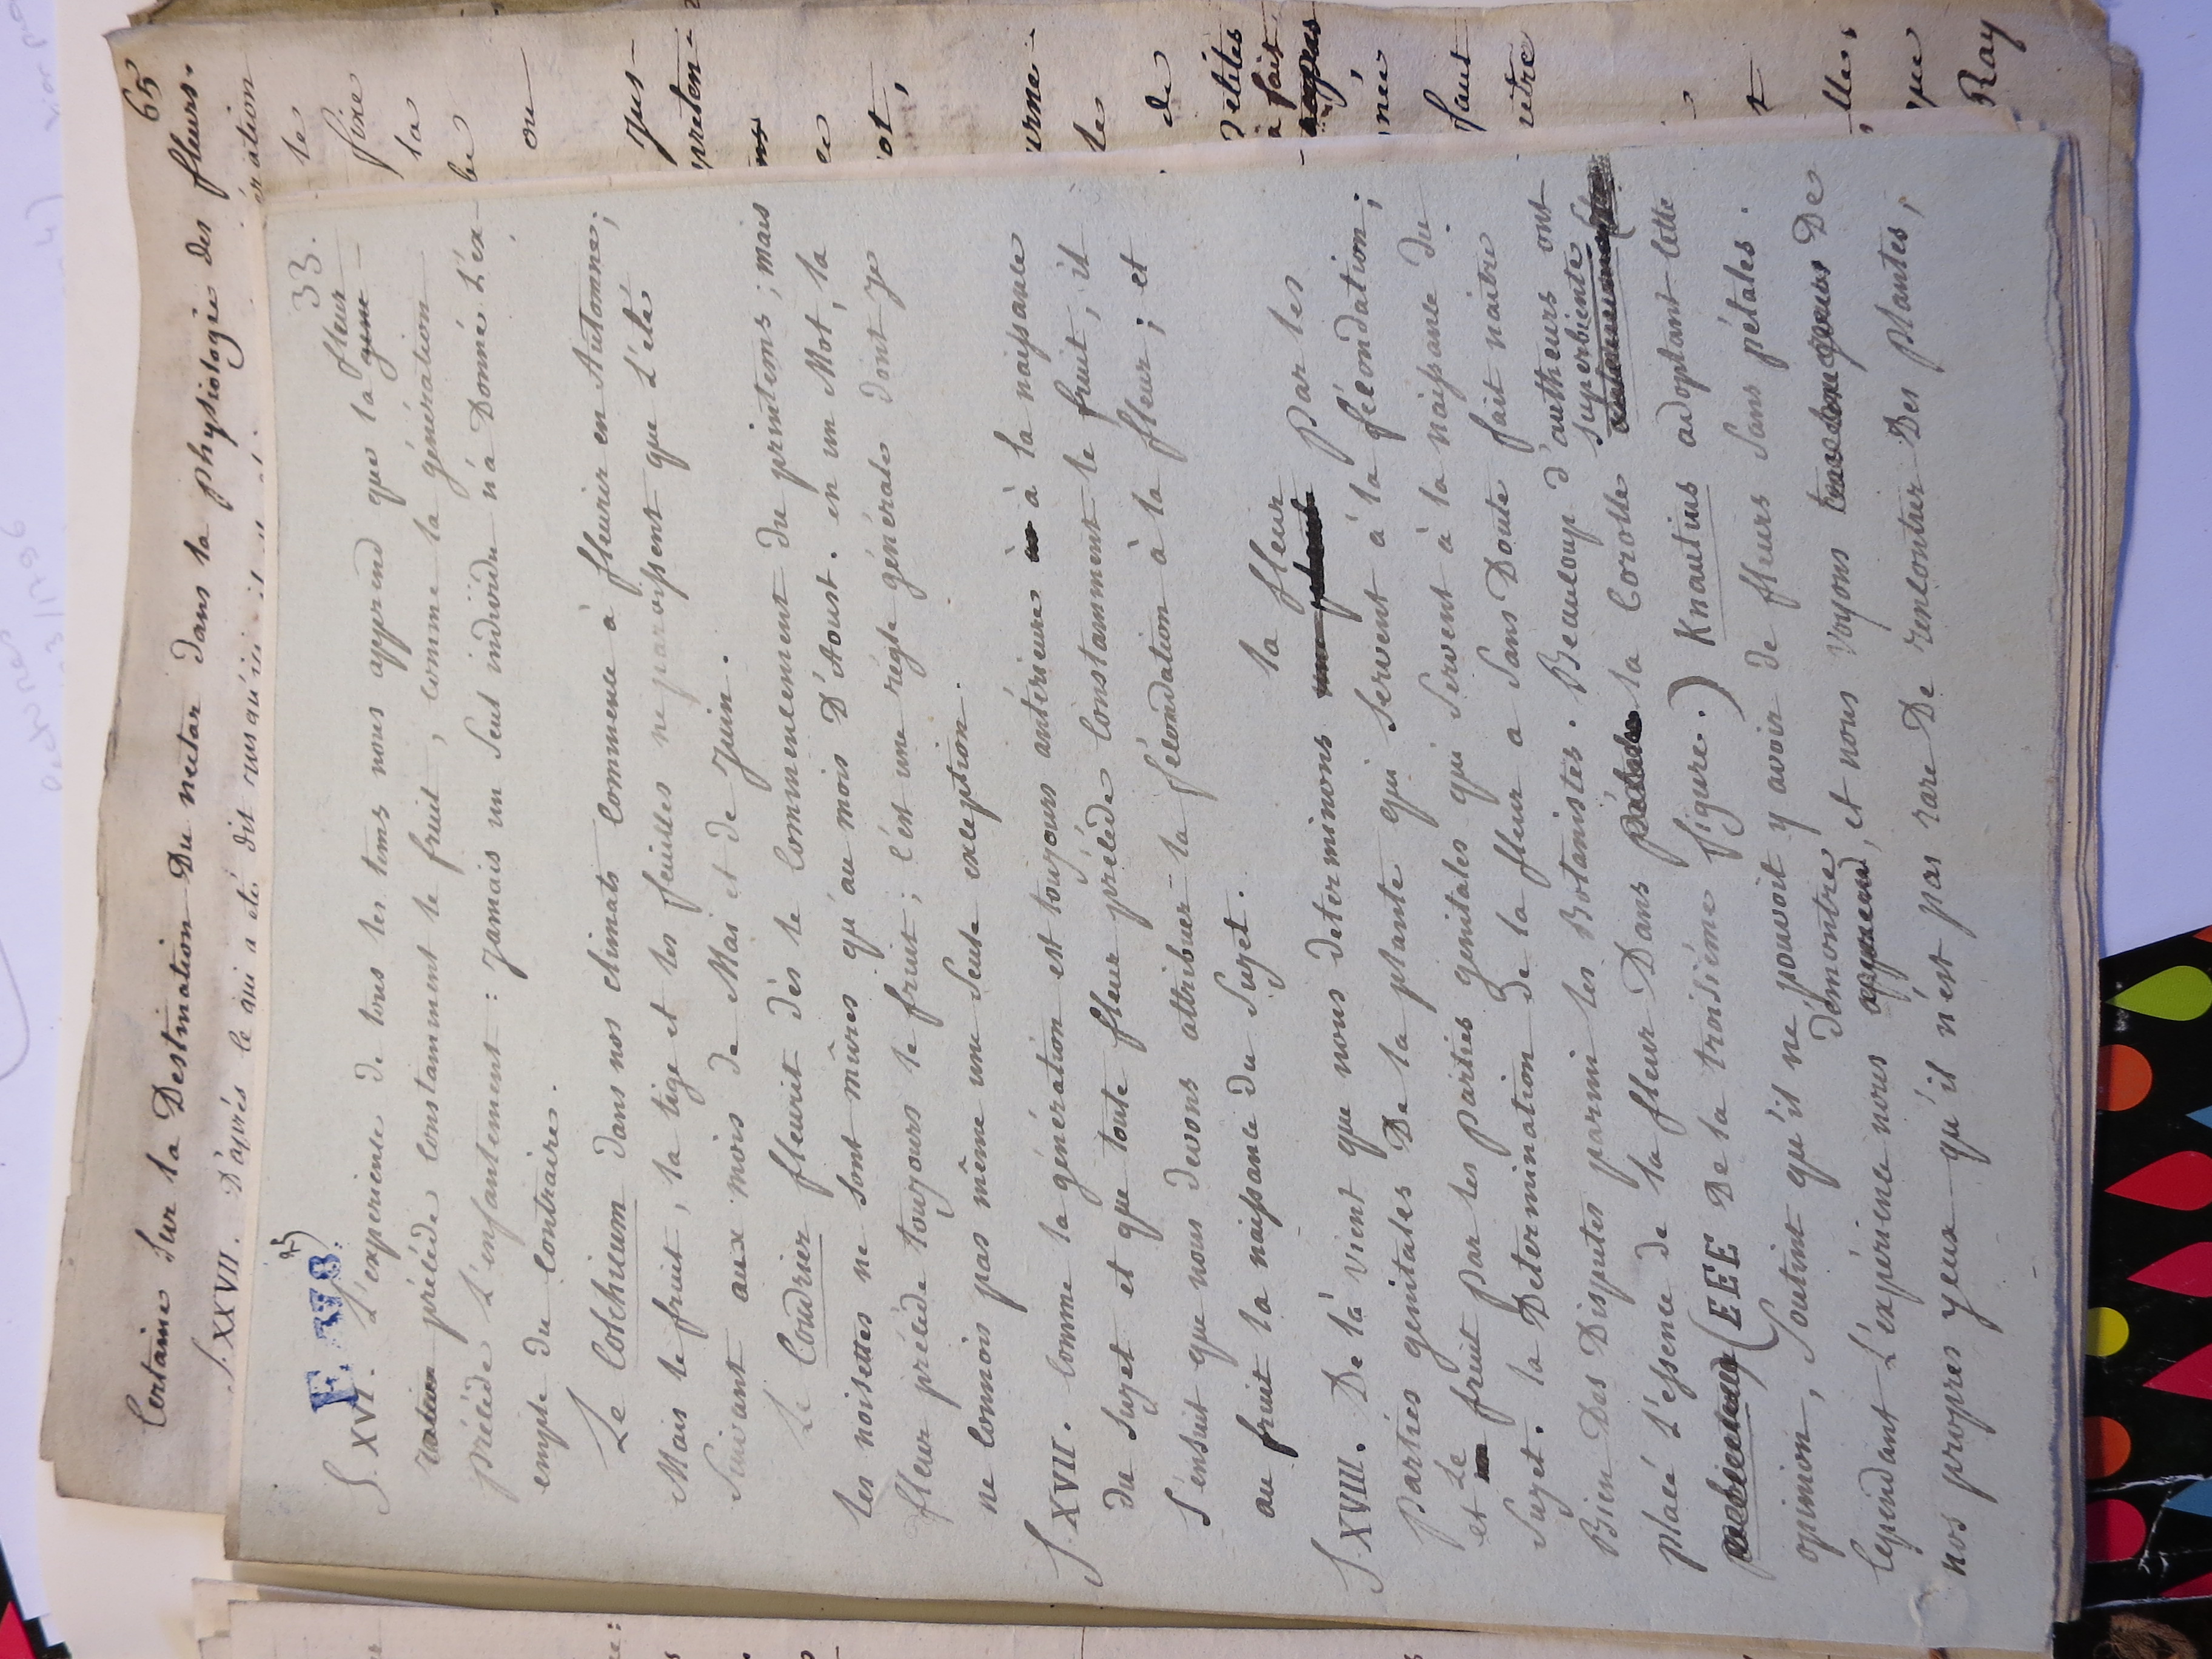 65
Certaine Sur la Destination Du nectar dans la physiologie des fleurs.
§. XXVII. D'après ce qui a été dit jusqu'ici il
ération
le
fixe
la
be
ou
jus-
preten-
ce
ot,
urne-
te
de
petites
à fait
née
faut
vitre
t
lles,
que
Ray
33.
E. N° 8.
fleur
§. XVI. L'experience de tous les tems nous apprend que la gene-
ration précéde constamment le fruit, comme la génération
précéde L'enfantement: jamais un Seul individu n'a Donné L'ex-
emple du contraire.
Le Colchicum dans nos climats commence à fleurir en Automne;
Mais le fruit, la tige et les feuilles ne paroissent que L'été
Suivant aux mois de Mai et de Juin.
Le Coudrier fleurit dès le commencement du printems; mais
les noisettes ne sont mûres qu'au mois D'Aoust. en un Mot, la
fleur précéde toujours le fruit; c'est une régle générale dont je
ne connois pas même une Seule exception.
§. XVII. Comme la génération est toujours antérieure à la naissance
du sujet et que toute fleur précéde constamment le fruit, il
s'ensuit que nous devons attribuer la fécondation à la fleur; et
au fruit la naissance du Sujet.
la fleur
§. XVIII. De là vient que nous determinons une plante par les
Parties genitales De la plante qui Servent à la fécondation;
et Le fruit par les parties genitales qui Servent à la naissance du
Sujet. la Determination de la fleur a Sans Doute fait naitre
Bien Des Disputes parmi les Botanistes. Beaucoup d'autheurs ont
superbiente
placé L'essence de la fleur Dans pétale la Corolle
(EEE De la troisiéme figure.) Knautius adoptant cette
opinion, Soutint qu'il ne pouvoit y avoir de fleurs Sans pétales.
démontre
Cependant L'expérience nous apprend, et nous voyons De
nos propres yeux qu'il n'est pas rare De rencontrer Des plantes,